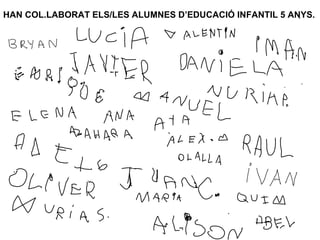 HAN COL.LABORAT ELS/LES ALUMNES D'EDUCACIÓ INFANTIL 5 ANYS.
BRYAN LUCIA VALENTIN IMAN
JAVIER DANIELA
MANUEL NURIA P.
ELENA ANA AYA
AZAHARA ALEX.M RAUL
OLALLA
OLIVER JUANC. IVAN
MARIA QUIM
NURIA S. ALISON ABEL